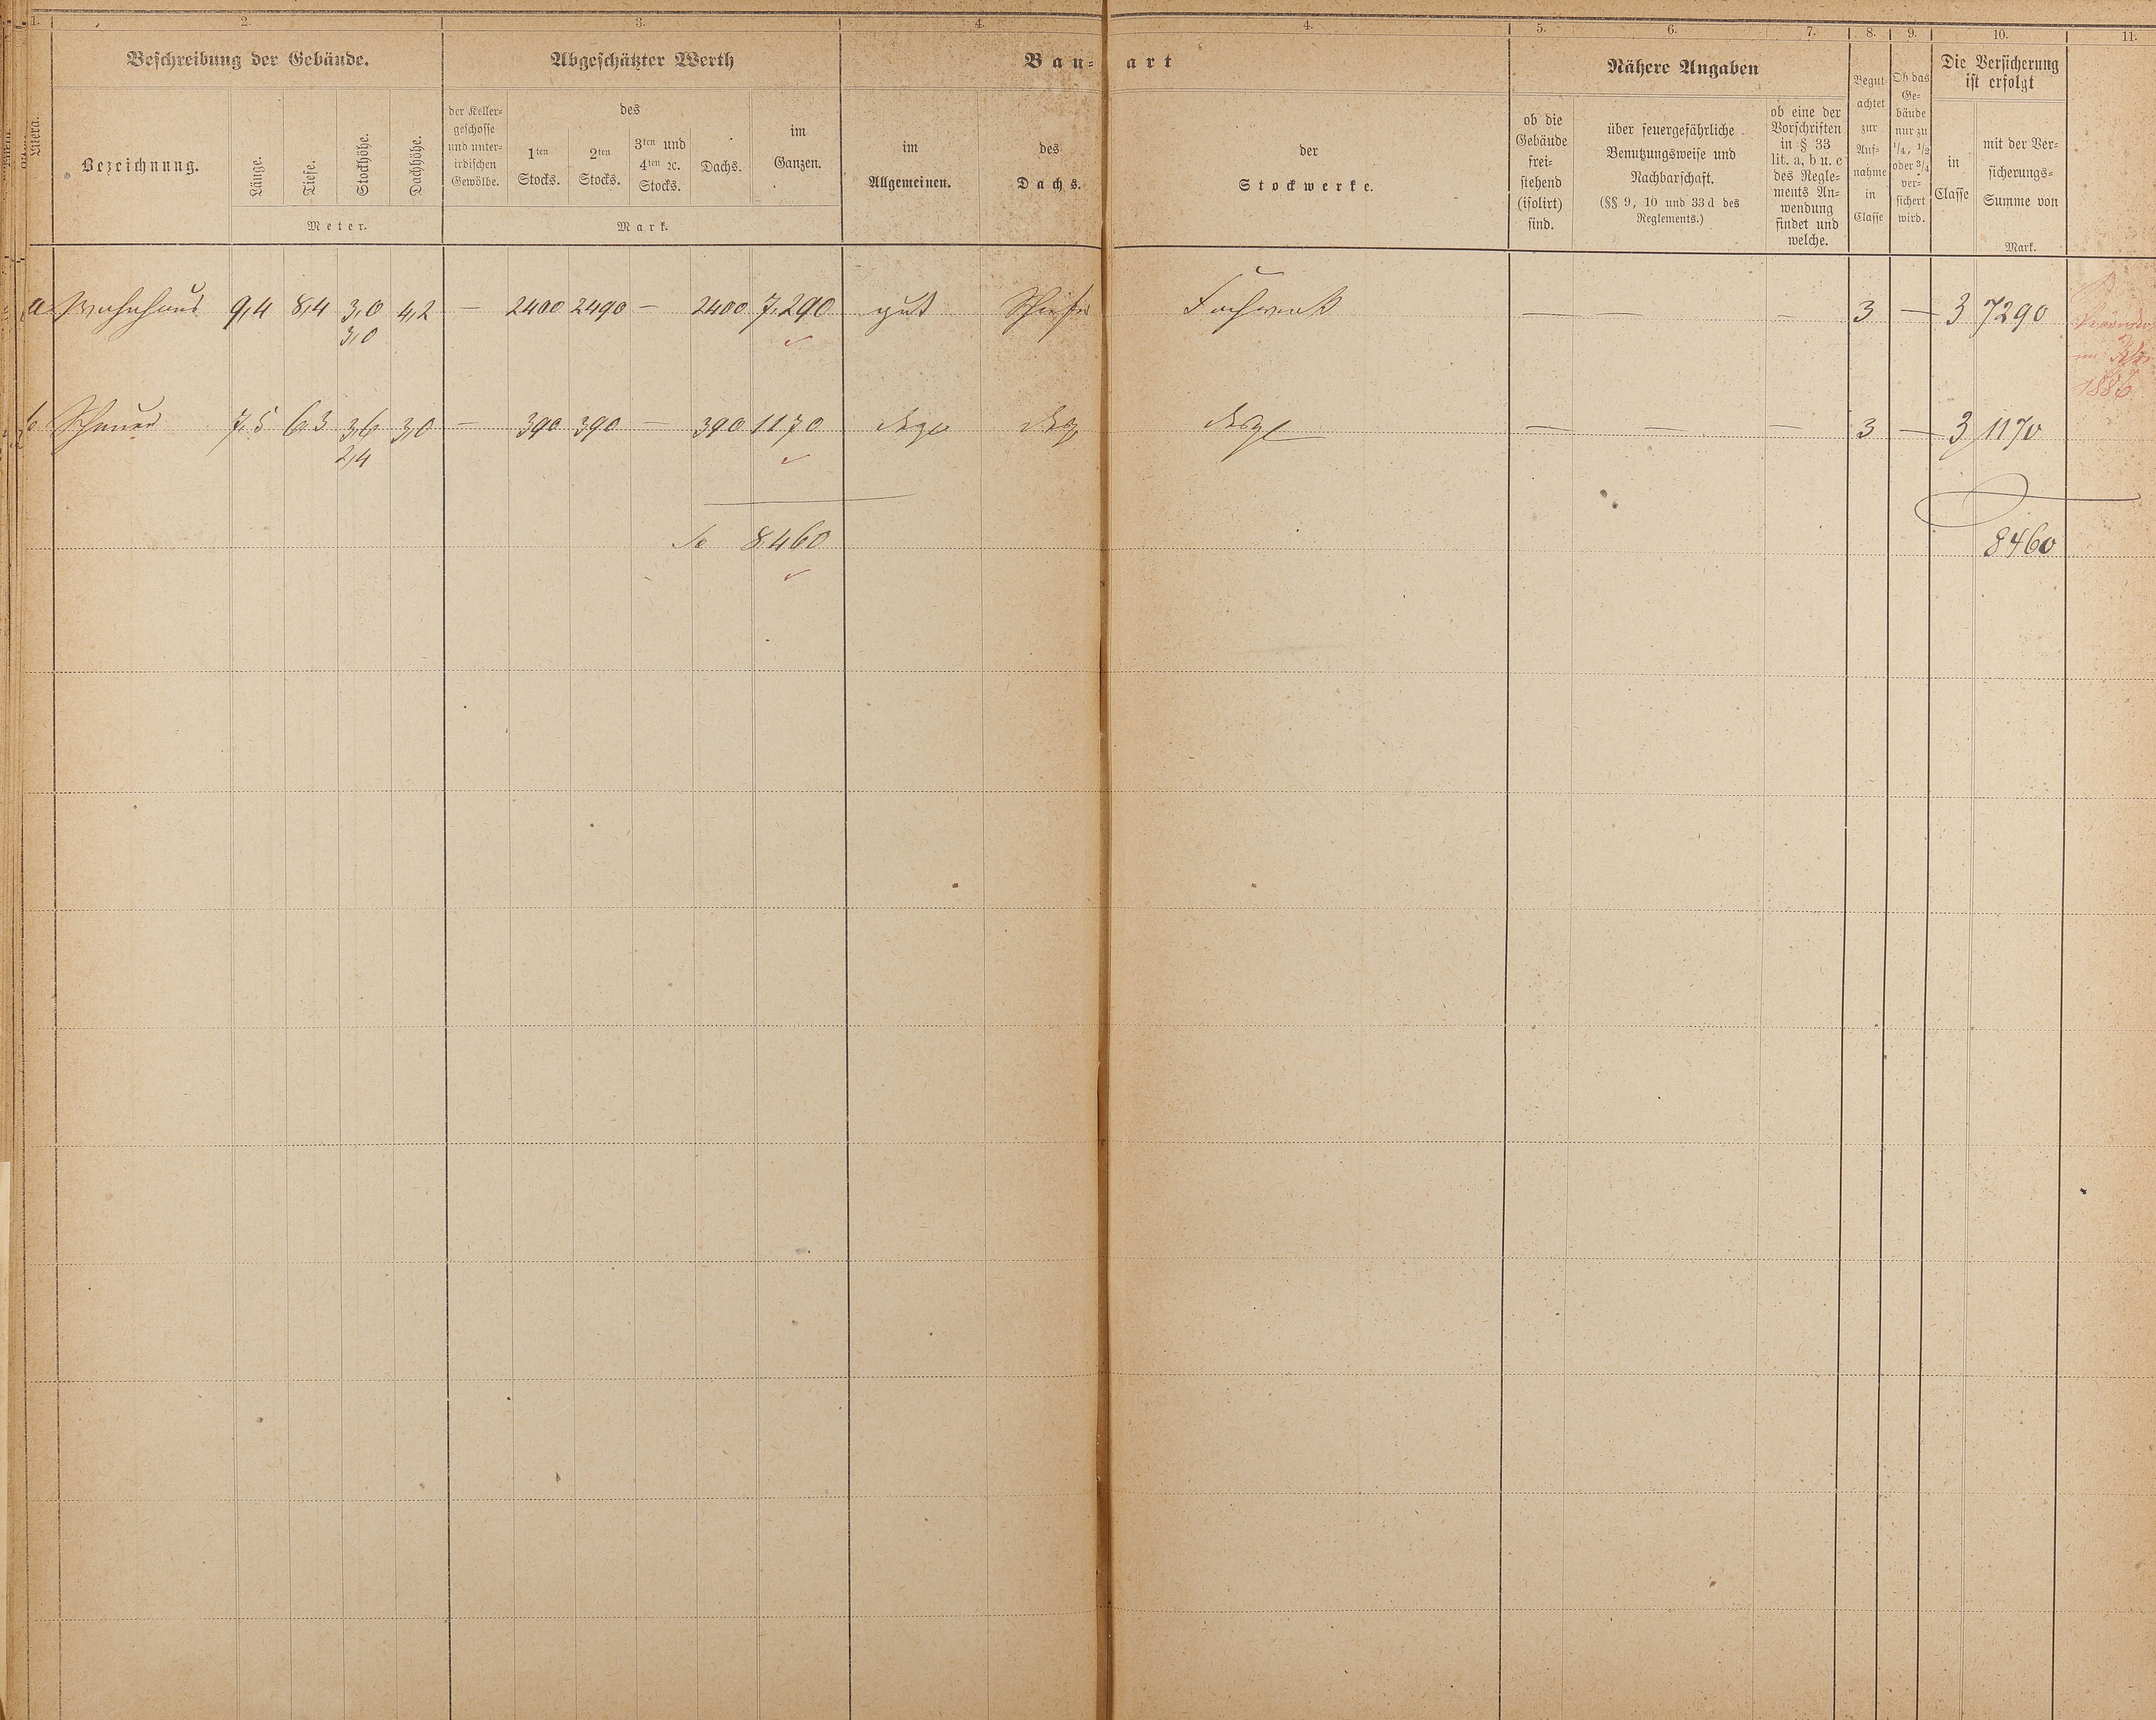 1. 2. 3. 4. 4. 5. 6. 7. 8. 9. 10. 11.
Beschreibung der Gebäude. Abgeschätzter Werth Bau- art Nähere Angaben
Littera.
Bezeichnung.
Länge.
Tiefe.
Stockhöhe.
Dachhöhe.
Meter.
der Keller-
geschosse
und unter-
irdischen
Gewölbe.
des
1ten
Stocks.
2ten
Stocks.
3ten und
4ten ꝛc.
Stocks.
Dachs.
im
Ganzen.
Mark.
im
Allgemeinen.
des
Dachs.
der
Stockwerke.
ob die
Gebäude
frei-
stehend
(isolirt)
sind.
über feuergefährliche
Benutzungsweise und
Nachbarschaft.
(§§ 9, 10 und 33 d des
Reglements.)
ob eine der
Vorschriften
in § 33
lit. a, b u. c
des Regle-
ments An-
wendung
findet und
welche.
Begut-
achtet
zur
Auf-
nahme
in
Classe
Ob das
Ge-
bäude
nur zu
1/4, 1/2
oder 3/4
ver-
sichert
wird.
Die Versicherung
ist erfolgt
in
Classe
mit der Ver-
sicherungs-
Summe von
Mark.
a Wohnhaus 9,4 8,4 3,0 4,2 — 2400 2490 — 2400 7,290 gut Schiefer Fachwerk — — — 3 — 3 7290
3,0
1886
b Scheuer 7,5 6,3 3,6 3,0 — 390 390 — 390 1170 desgl desgl desgl — — — 3 — 3 1170
2,4
Sa 8460 8460